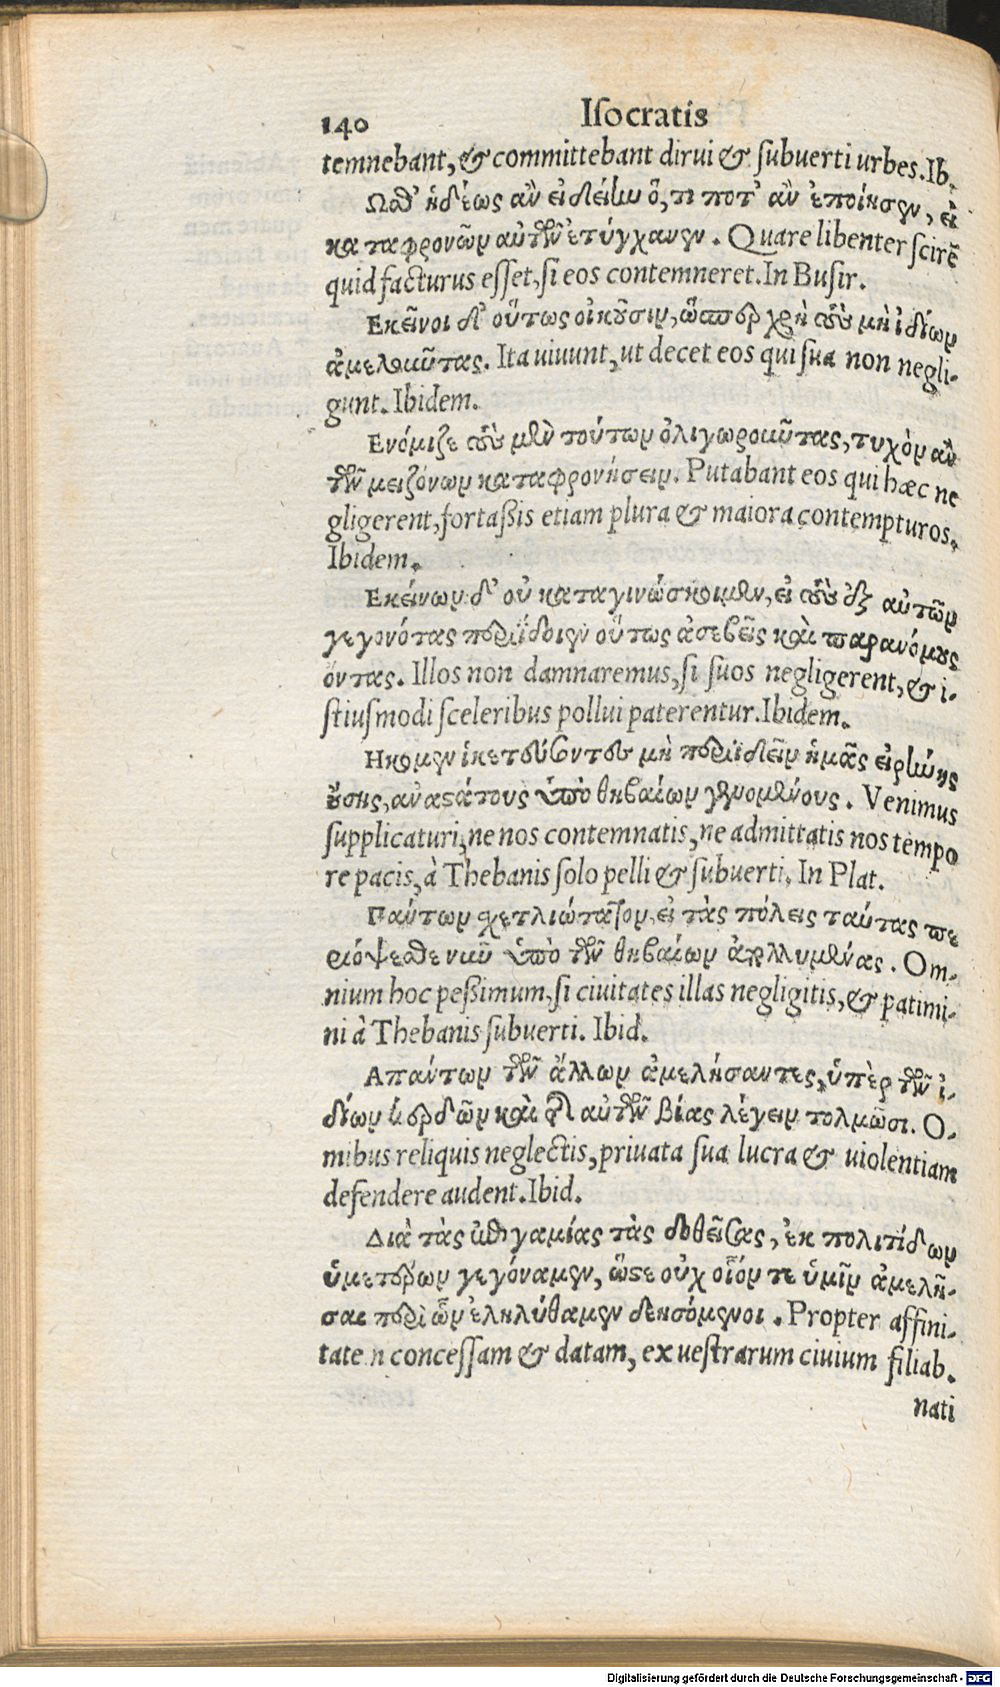 140 Isocratis
temnebant, & committebant dirui & subuerti urbes. Ib.
Ωσθ' ἡδέως ἂν εἰδείην ὅ, τι ποτ' ἂν ἐποίησεν, εἰ
καταφρονῶν αὐτῶν ἐτύγχανεν. Quare libenter scirē
quid facturus esset, si eos contemneret. In Busir.
Εκεῖνοι δ' οὕτως οἰκοῦσιν, ὥσπερ χρὴ τοὺς μὴ ἰδίων
ἀμελοῦντας. Ita uiuunt, ut decet eos qui sua non negli-
gunt. Ibidem.
Ενόμιζε τοὺς μὲν τούτων ὀλιγωροῦντας, τυχὸν ἂν
τῶν μειζόνων καταφρονήσειν. Putabant eos qui hæc ne
gligerent, fortaßis etiam plura & maiora contempturos.
Ibidem.
Εκείνων δ' οὐ καταγινώσκοιμεν, εἰ τοὺς ἐξ αὐτῶν
γεγονότας περιΐδοιεν οὕτως ἀσεβεῖς καὶ παρανόμους
ὄντας. Illos non damnaremus, si suos negligerent, & i-
stiusmodi sceleribus pollui paterentur. Ibidem.
Ηκομεν ἱκετεύσοντες μὴ περιϊδεῖν ἡμᾶς εἰρήνης
οὔσης, ἀναστάτους ὑπὸ θηβαίων γενομένους. Venimus
supplicaturi, ne nos contemnatis, ne admittatis nos tempo
re pacis, à Thebanis solo pelli & subuerti. In Plat.
Πάντων σχετλιώτατον, εἰ τὰς πόλεις ταύτας πε
ριόψεσθε νῦν ὑπὸ τῶν θηβαίων ἀπολλυμένας. Om-
nium hoc peßimum, si ciuitates illas negligitis, & patimi-
ni à Thebanis subuerti. Ibid.
Απάντων τῶν ἄλλων ἀμελήσαντες, ὑπὲρ τῶν ἰ-
δίων κερδῶν καὶ τῆς αὐτῶν βίας λέγειν τολμῶσι. O-
mibus reliquis neglectis, priuata sua lucra & uiolentiam
defendere audent. Ibid.
Διὰ τὰς ἐπιγαμίας τὰς δοθείσας, ἐκ πολιτίδων
ὑμετέρων γεγόναμεν, ὥστε οὐχ οἷόν τε ὑμῖν ἀμελῆ-
σαι περὶ ὧν ἐληλύθαμεν δεησόμενοι. Propter affini-
tatem concessam & datam, ex uestrarum ciuium filiab.
nati
Digitalisierung gefördert durch die Deutsche Forschungsgemeinschaft - DFG